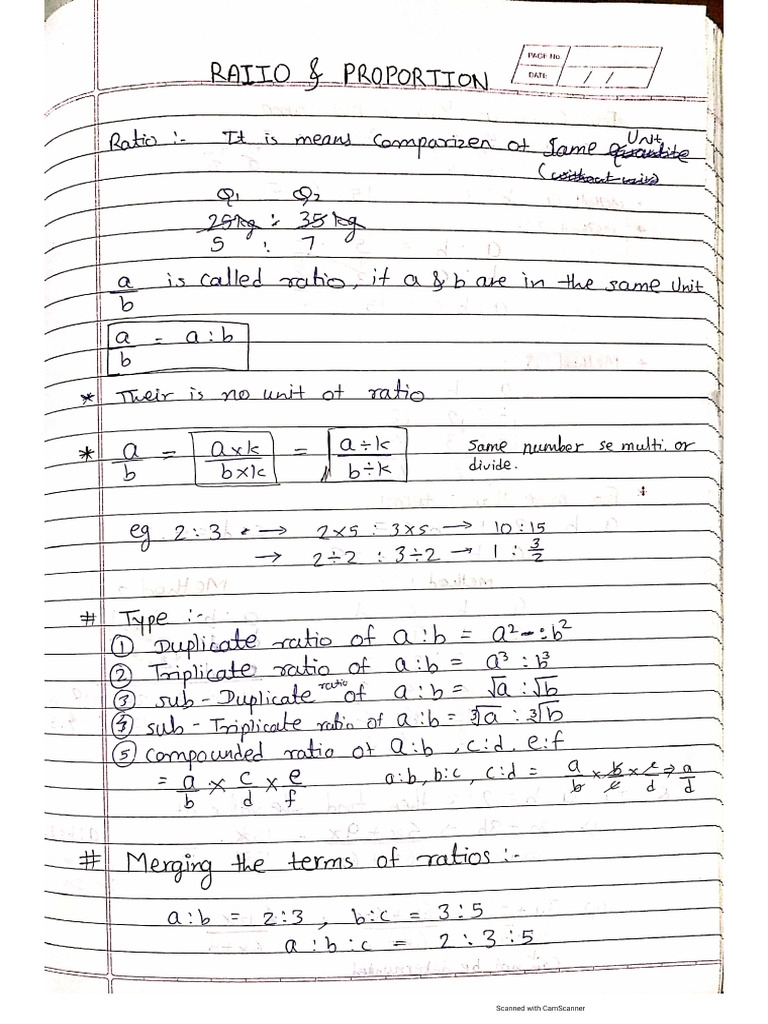 PAGE No.
DATE: / /
RATIO & PROPORTION
Ratio :- It is means comparizen of same Unit quantite
(without unit)
Q1 Q2
25kg : 35kg
5 : 7
a/b is called ratio, if a & b are in the same Unit
a/b = a : b
* Their is no unit of ratio
* a/b = a×k/b×k = a÷k/b÷k Same number se multi. or
divide.
eg. 2 : 3 • → 2×5 : 3×5 → 10 : 15
→ 2÷2 : 3÷2 → 1 : 3/2
# Type :-
① Duplicate ratio of a : b = a² - : b²
② Triplicate ratio of a : b = a³ : b³
③ sub - Duplicate ratio of a : b = √a : √b
④ sub - Triplicate ratio of a : b = ∛a : ∛b
⑤ compounded ratio of a : b , c : d . e : f
= a/b × c/d × e/f a:b, b:c, c:d = a/b × b/c × c/d ⇒ a/d
# Merging the terms of ratios :-
a : b = 2 : 3 , b : c = 3 : 5
a : b : c = 2 : 3 : 5
Scanned with CamScanner